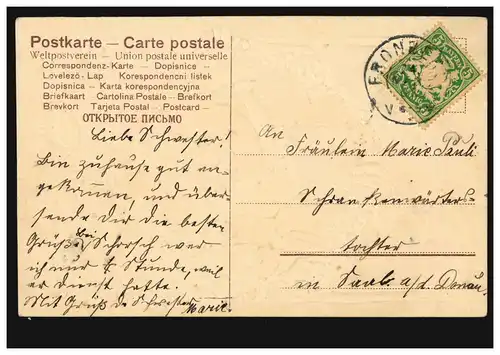 Postkarte – Carte postale
Weltpostverein – Union postale universelle
Correspondenz-Karte – Dopisnice
Levelező-Lap – Korespondencni listek
Dopisnica – Karta korespondencyjna
Briefkaart – Cartolina Postale – Brefkort
Brevkort – Tarjeta Postal – Postcard –
ОТКРЫТОЕ ПИСЬМО
Liebe Schwester!
Bin zuhause gut an-
gekommen, und über-
sende Dir die besten
Grüße bei Schorsch wer
ich nur ½ Stunde, weil
er Dienst hatte.
Mit Gruß d. Schwester
Marie.
FRONT
5
5
An
Fräulein Marie Pauli
Schrankenwärters-
tochter
in Saal a/d. Donau.